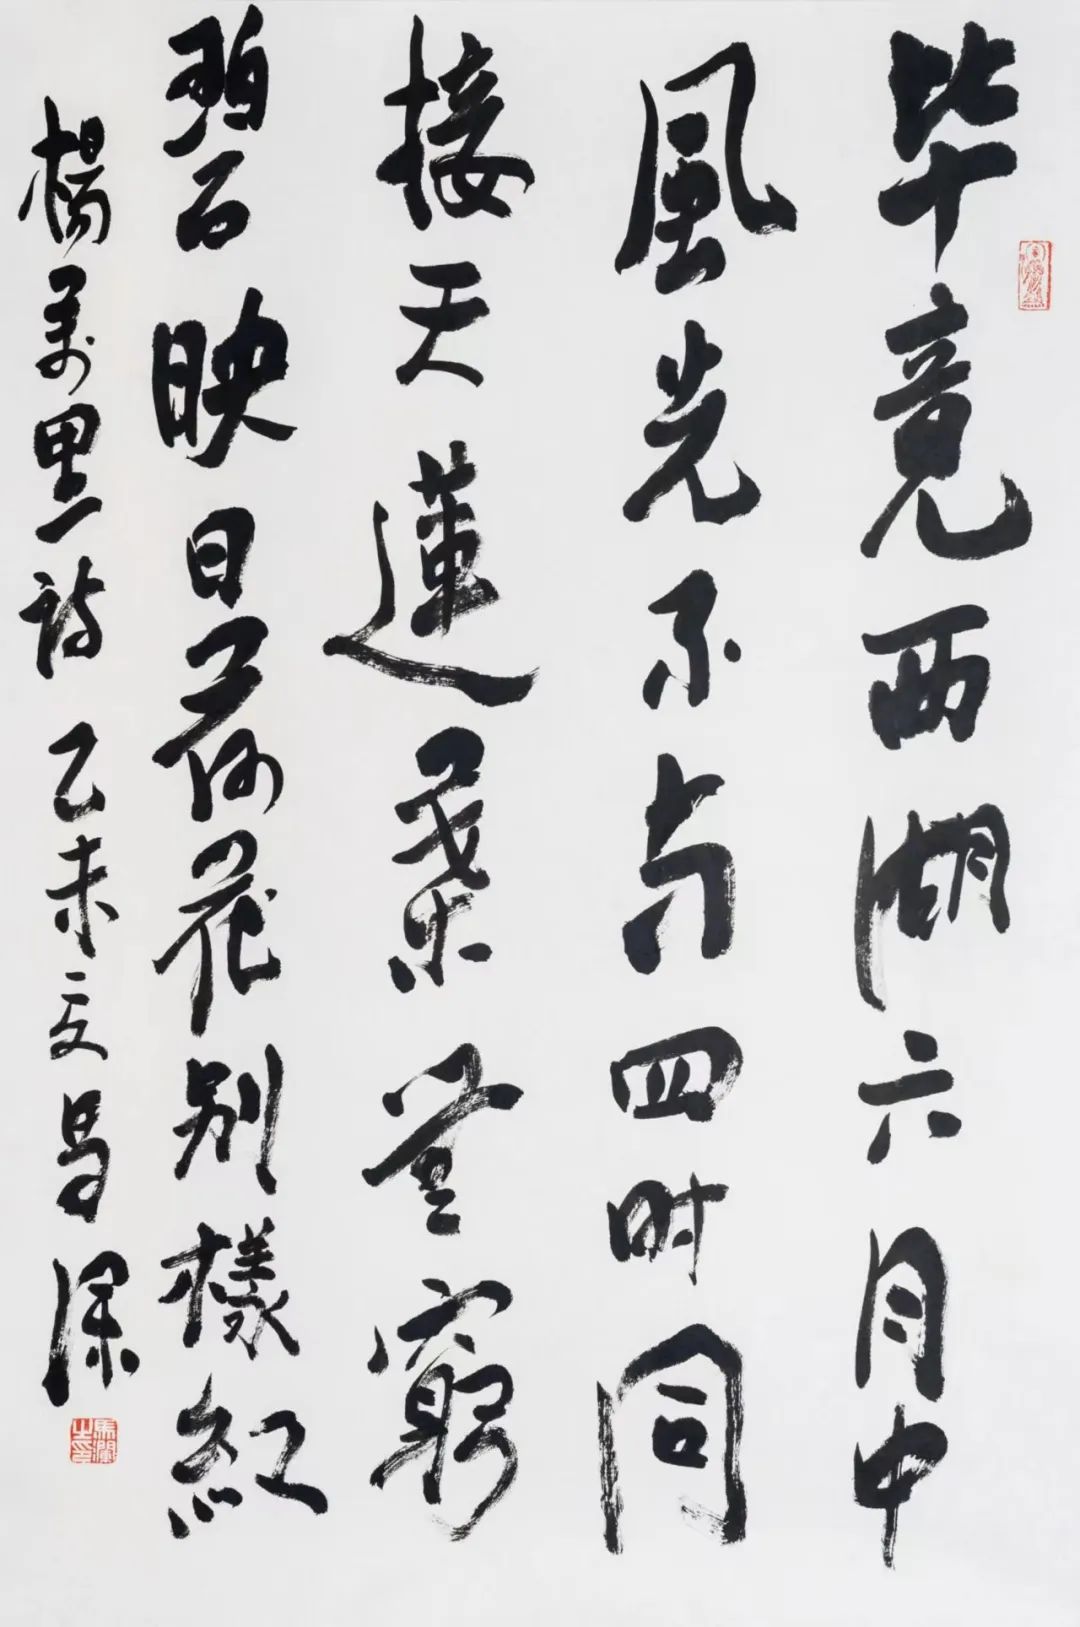 毕竟西湖六月中
風光不与四时同
接天蓮葉無窮
碧映日荷花别樣紅
楊萬里詩 乙未夏馬